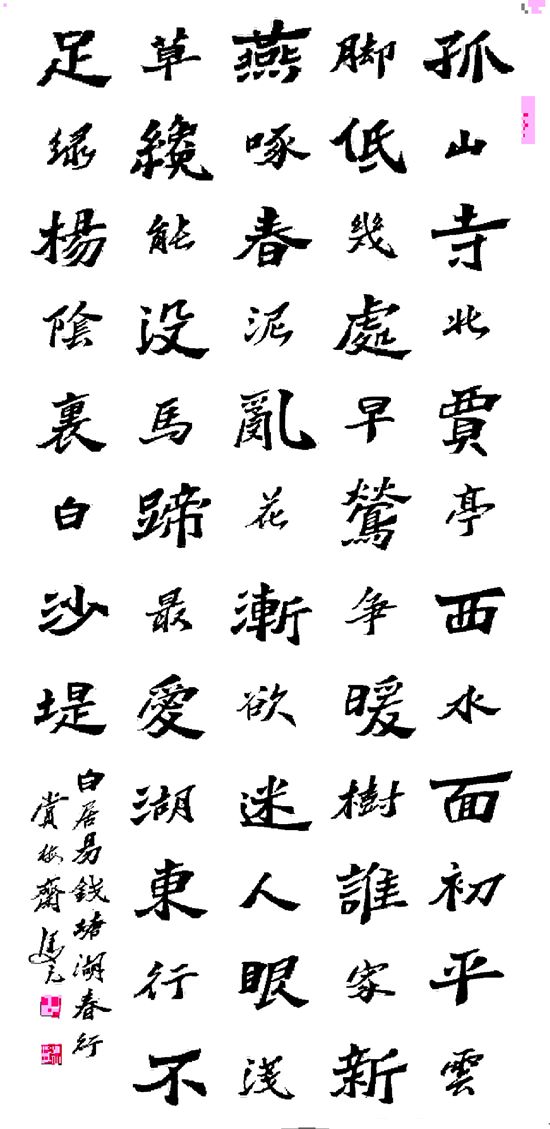 孤山寺北賈亭西水面初平雲
脚低幾處早鶯争暖樹誰家新
燕啄春泥亂花漸欲迷人眼淺
草纔能没馬蹄最愛湖東行不
足緑楊陰裏白沙堤
白居易錢塘湖春行
賞梅齋